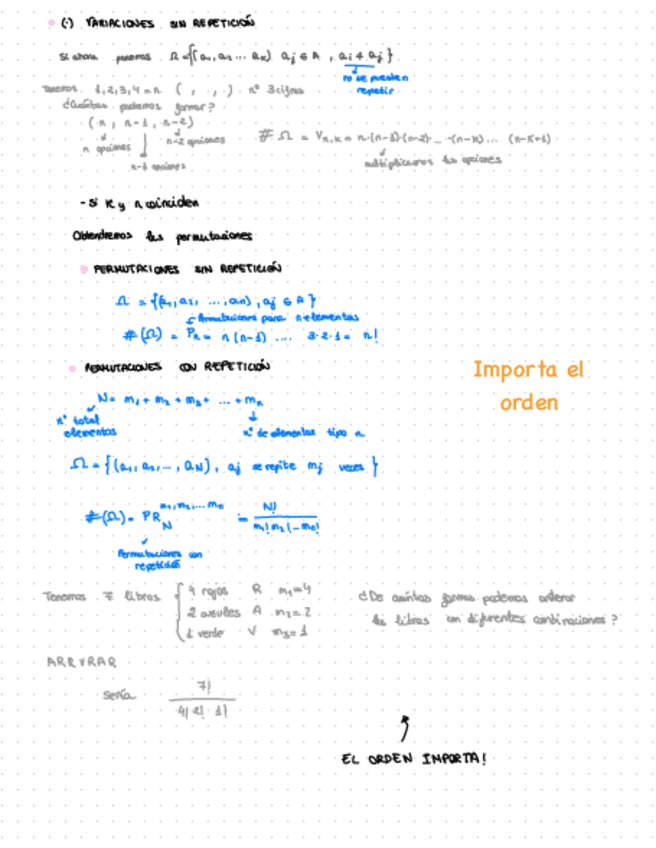 (·) VARIACIONES SIN REPETICIÓN
Si ahora ponemos Ω = {(a₁, a₂ ... aₖ) aj ∈ A , ai ≠ aj }
no se pueden
repetir
Tenemos 1,2,3,4 = n ( , , ) nº 3 cifras
¿Cuántas podemos formar?
(n, n-1, n-2)
n opciones
n-2 opciones
n-1 opciones
# Ω = Vn,k = n·(n-1)·(n-2)· ... ·(n-k) ... (n-k+1)
multiplicamos las opciones
- Si k y n coinciden
Obtendremos las permutaciones
PERMUTACIONES SIN REPETICIÓN
Ω = {(a₁, a₂, ..., an), aj ∈ A}
Permutaciones para n elementos
#(Ω) = Pn = n (n-1) .... 3·2·1 = n!
PERMUTACIONES CON REPETICIÓN
Importa el
orden
N = m₁ + m₂ + m₃ + ... + mn
nº total
elementos
nº de elementos tipo n
Ω = {(a₁, a₂, ..., aN), aj se repite mj veces }
#(Ω) = PR N m₁, m₂, ... mn = N! / m₁! m₂! ... mn!
Permutaciones con
repetición
Tenemos 7 libros
4 rojos R m₁=4
2 azules A m₂=2
1 verde V m₃=1
¿De cuántas formas podemos ordenar
los libros con diferentes combinaciones?
ARRVRAR
Sería 7! / 4! 2! · 1!
EL ORDEN IMPORTA!